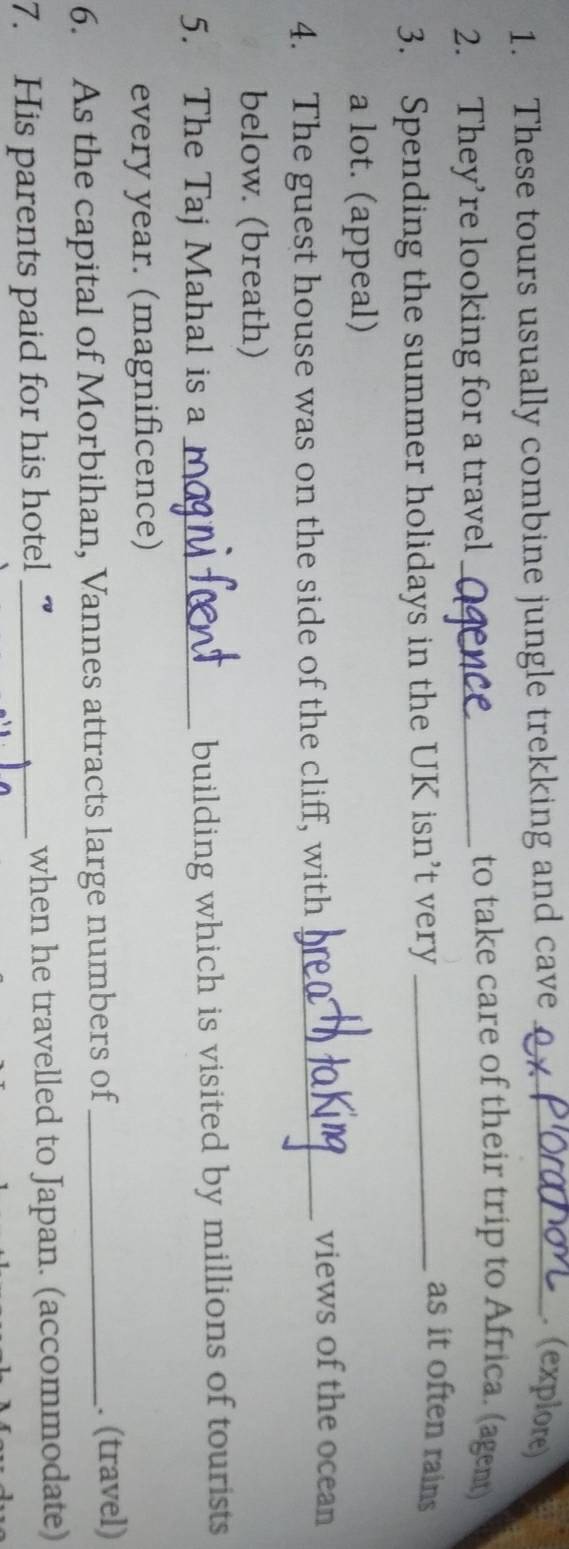 1. These tours usually combine jungle trekking and cave exploration. (explore)
2. They're looking for a travel agence to take care of their trip to Africa. (agent)
3. Spending the summer holidays in the UK isn't very ____________ as it often rains
a lot. (appeal)
4. The guest house was on the side of the cliff, with breathtaking views of the ocean
below. (breath)
5. The Taj Mahal is a magnifcent building which is visited by millions of tourists
every year. (magnificence)
6. As the capital of Morbihan, Vannes attracts large numbers of ____________. (travel)
7. His parents paid for his hotel ____________ when he travelled to Japan. (accommodate)